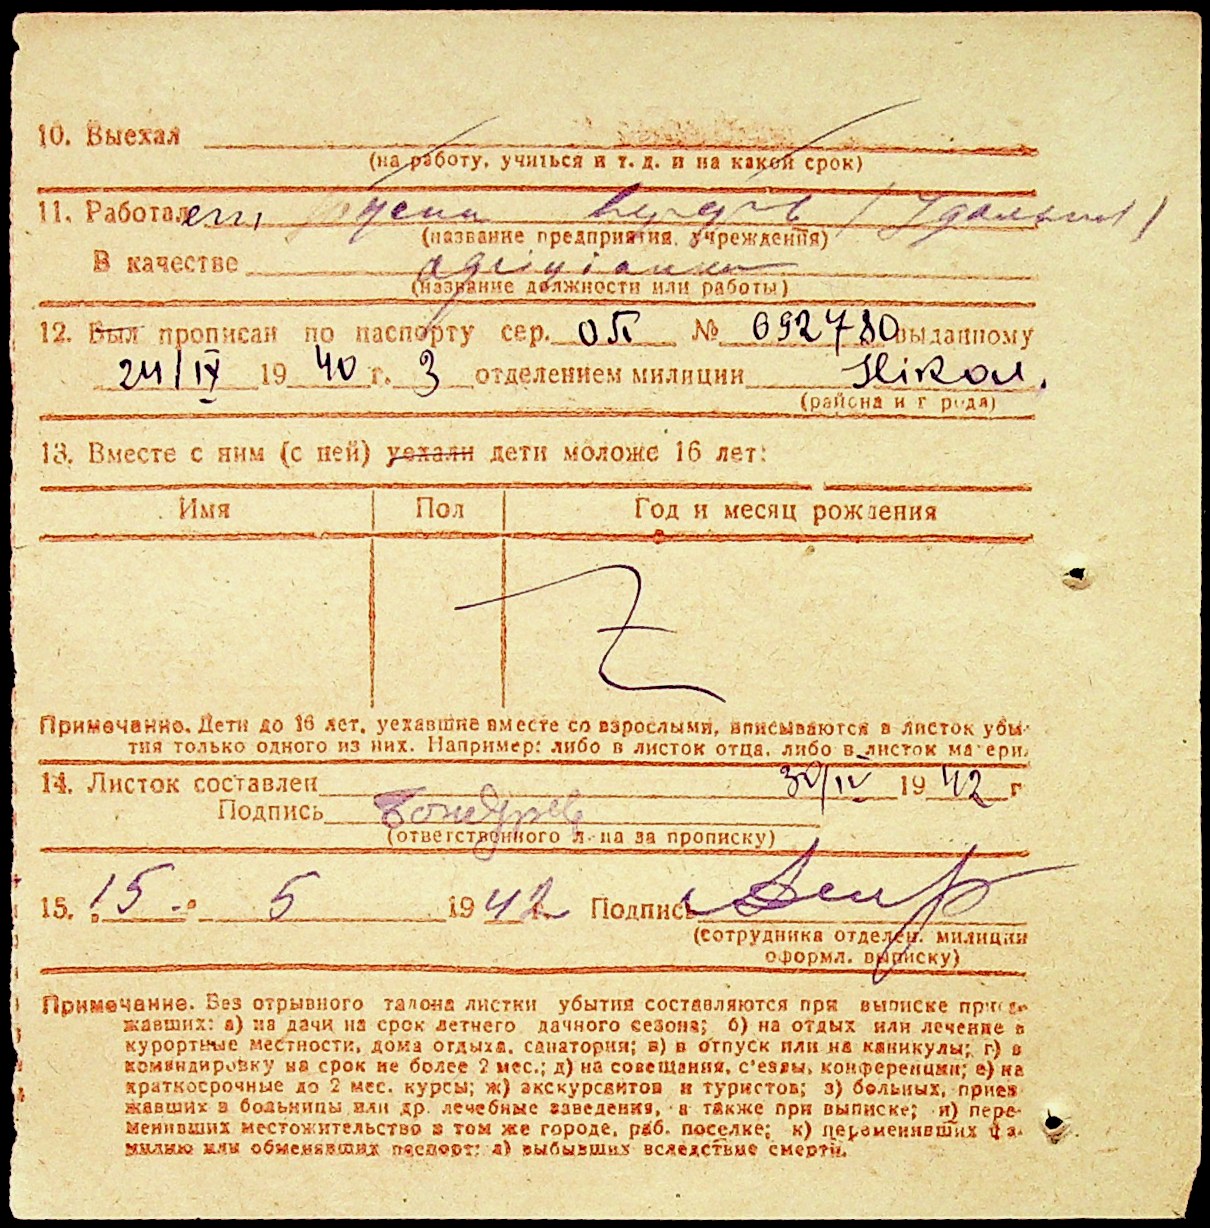 10. Выехал
(на работу, учиться и т. д. и на какой срок)
11. Работал
(название предприятия, учреждения)
В качестве
(название должности или работы)
12. Был прописан по паспорту сер. ОП № 692780 выданному
24/IX 1940 г. 3 отделением милиции Нікол.
(района и города)
13. Вместе с ним (с ней) уехали дети моложе 16 лет:
Имя Пол Год и месяц рождения
Z
Примечание. Дети до 16 лет, уехавшие вместе со взрослыми, вписываются в листок убы-
тия только одного из них. Например: либо в листок отца, либо в листок матери.
14. Листок составлен 30/IV 1942 г
Подпись
(ответственного л-ца за прописку)
15. 15. 5 1942 Подпись
(сотрудника отделен. милиции
оформл. выписку)
Примечание. Без отрывного талона листки убытия составляются при выписке приез-
жавших: а) на дачи на срок летнего дачного сезона; б) на отдых или лечение в
курортные местности, дома отдыха, санатории; в) в отпуск или на каникулы; г) в
командировку на срок не более 2 мес.; д) на совещания, с'езды, конференции; е) на
краткосрочные до 2 мес. курсы; ж) экскурсантов и туристов; з) больных, приез-
жавших в больницы или др. лечебные заведения, а также при выписке; и) пере-
менивших местожительство в том же городе, раб. поселке; к) переменивших фа-
милию или обменявших паспорт; л) выбывших вследствие смерти.